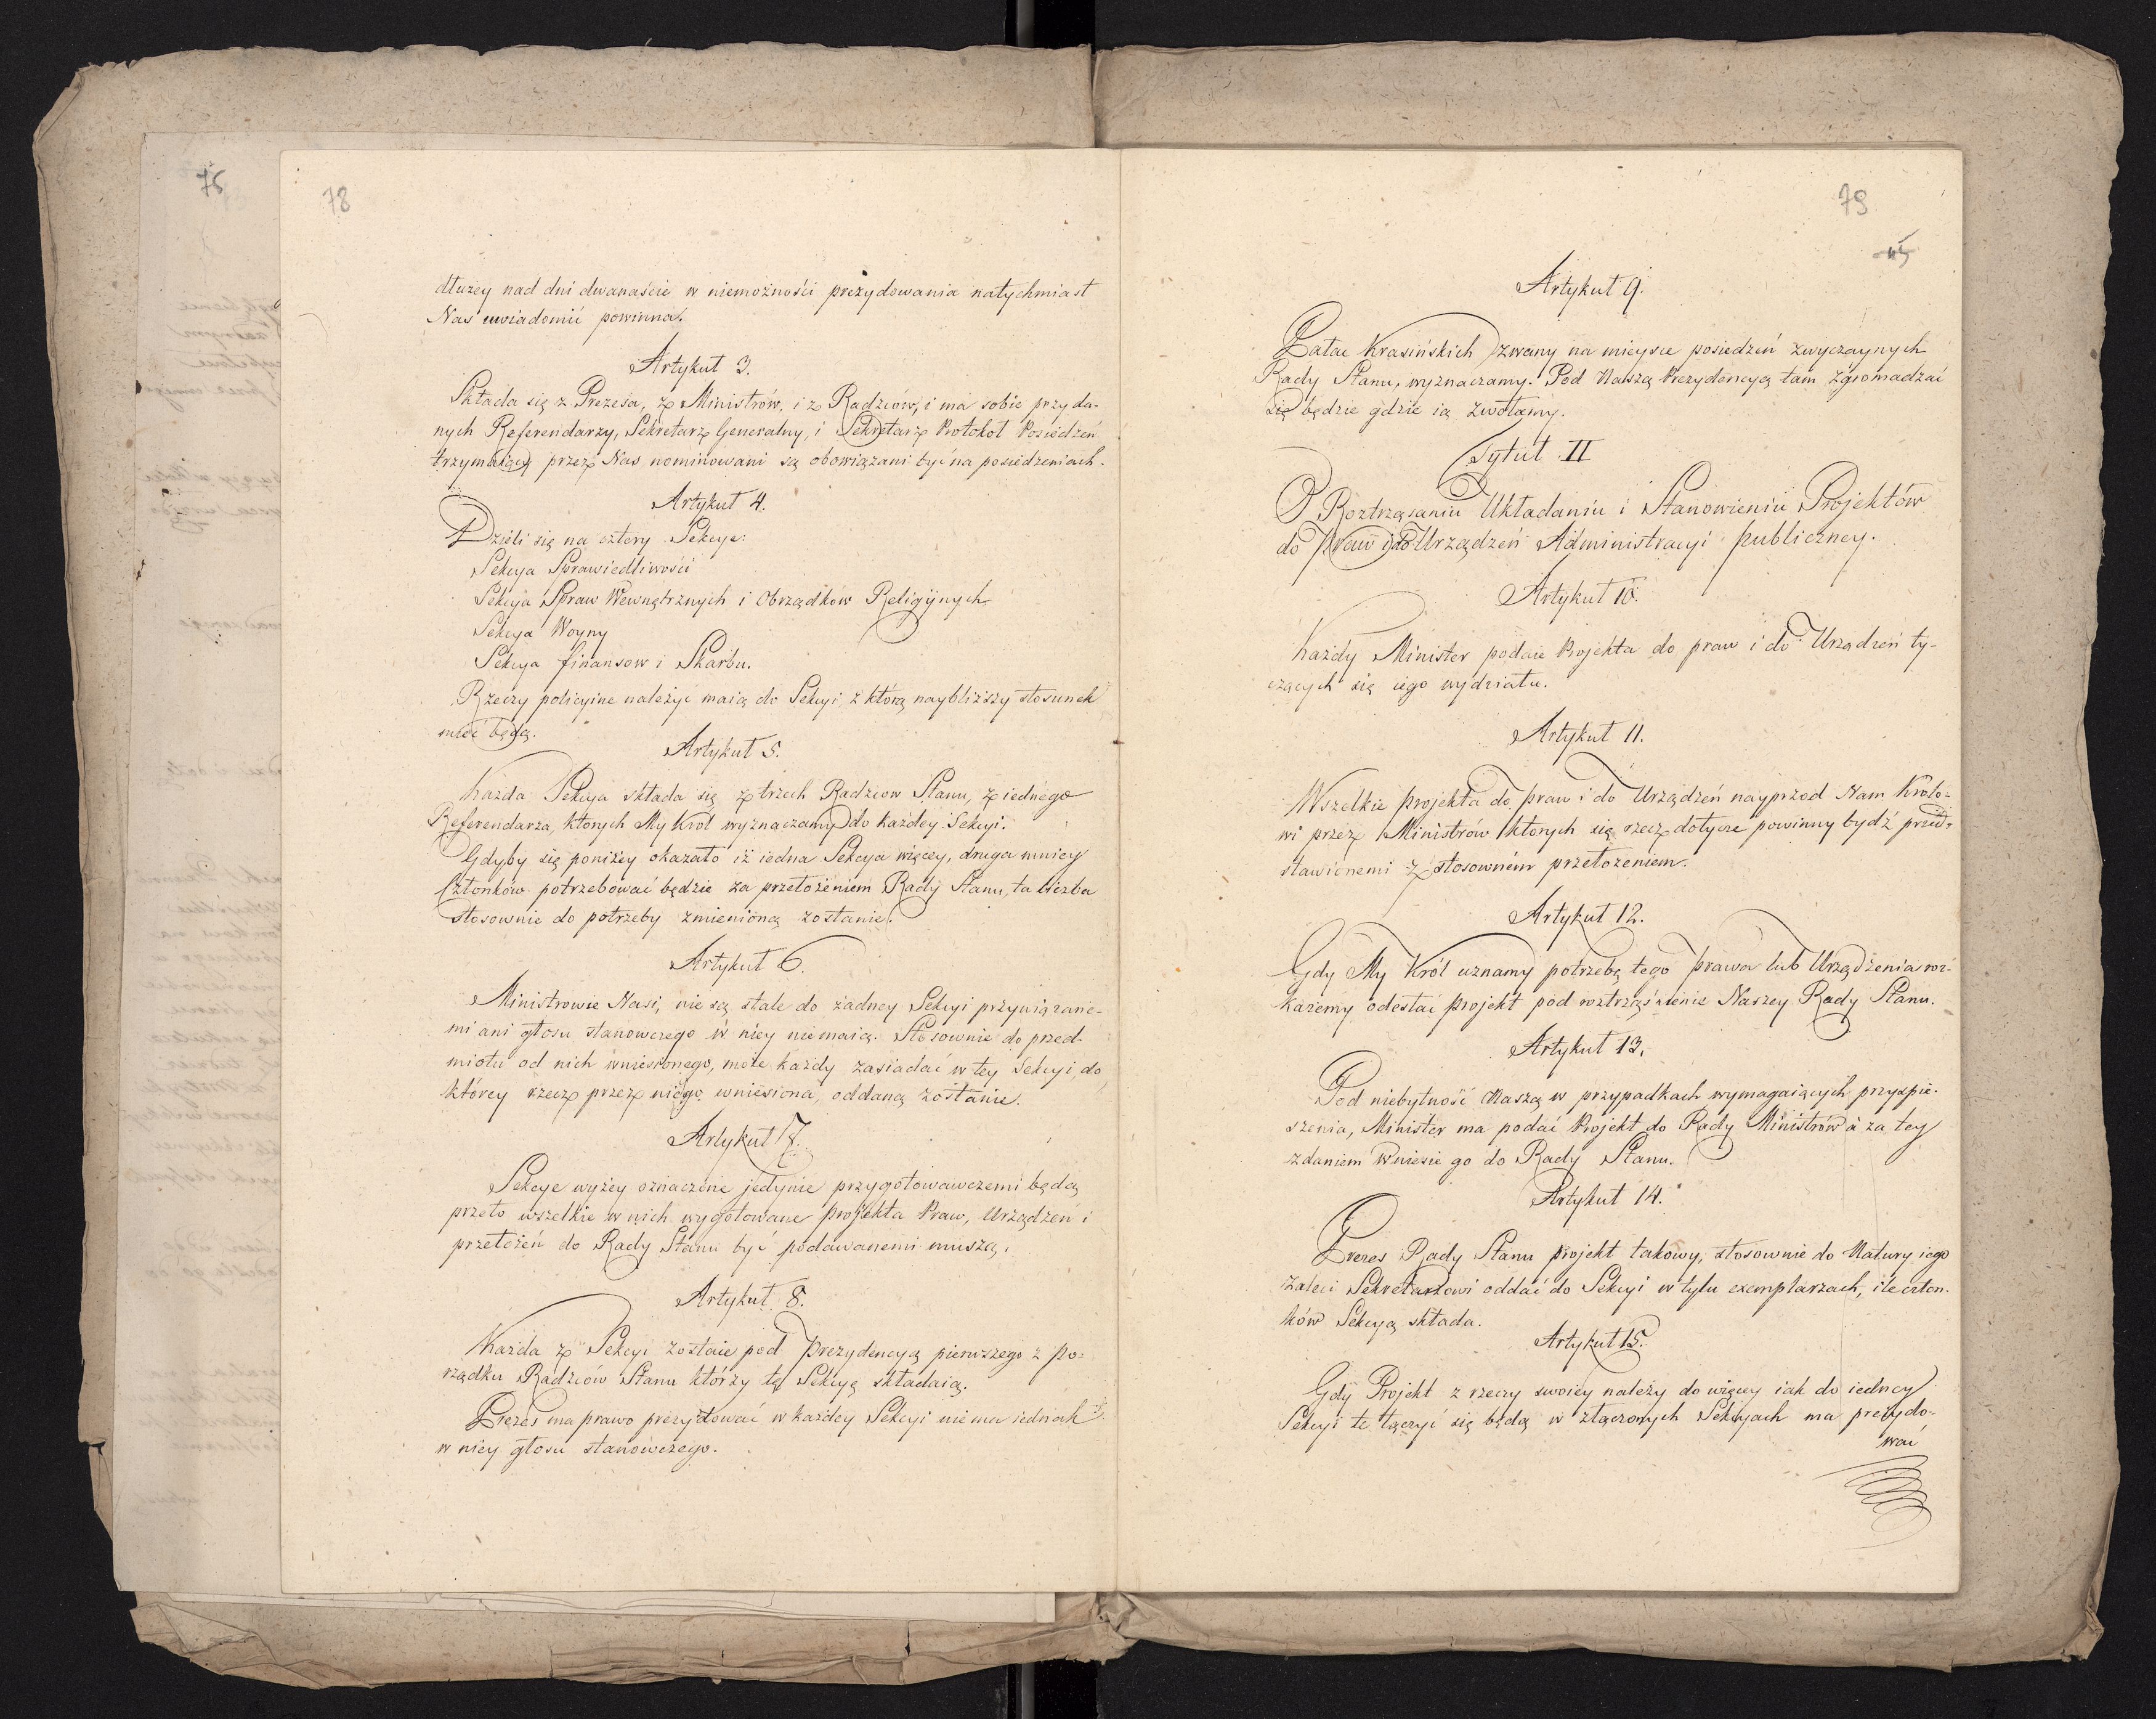 75
78
dłużey nad dni dwanaście w niemożności prezydowania natychmiast
Nas uwiadomić powinna.
Artykuł 3.
Składa się z Prezesa, z Ministrów, i z Radzców, i ma sobie przyda-
nych Referendarzy, Sekretarz Generalny, i Sekretarz Protokoł Posiedzeń
trzymaiący przez Nas nominowani są obowiązani być na posiedzeniach.
Artykuł 4.
Dzieli się na cztery Sekcye:
Sekcya Sprawiedliwości
Sekcya Spraw Wewnętrznych i Obrządków Religiynych
Sekcya Woyny
Sekcya finansow i Skarbu.
Rzeczy policyine należyć maią do Sekcyi z którą naybliższy stosunek
mieć będą.
Artykuł 5.
Każda Sekcya składa się z trzech Radzcow Stanu, z iednego
Referendarza, ktorych My Krol wyznaczamy do każdey Sekcyi.
Gdyby się poniżey okazało iż iedna Sekcya więcey, druga mniey
Członków potrzebować będzie za przełożeniem Rady Stanu, ta liczba
stosownie do potrzeby zmienioną zostanie.
Artykuł 6.
Ministrowie Nasi, nie są stale do żadney Sekcyi przywiązane-
mi ani głosu stanowczego w niey nie maią. Stosownie do przed-
miotu od nich wniesionego, może każdy zasiadać w tey Sekcyi, do
którey rzecz przez niego wniesiona, oddaną zostanie.
Artykuł 7.
Sekcye wyżey oznaczone jedynie przygotowawczemi będą,
przeto wszelkie w nich wygotowane projekta Praw, Urządzeń i
przełożeń do Rady Stanu być podawanemi muszą.
Artykuł 8.
Każda z Sekcyi zostaie pod Prezydencyą pierwszego z po-
rządku Radzców Stanu którzy tę Sekcyę składaią.
Prezes ma prawo prezydować w każdey Sekcyi nie ma iednak
w niey głosu stanowczego.
79
45
Artykuł 9.
Pałac Krasińskich zwany na mieysce posiedzeń zwyczaynych
Rady Stanu, wyznaczamy. Pod Naszą Prezydencyą tam zgromadzać
się będzie gdzie ią zwołamy.
Tytuł II
O Roztrząsaniu Układaniu i Stanowieniu Projektów
do Praw i do Urządzeń Administracyi publiczney.
Artykuł 10.
Każdy Minister podaie Projekta do praw i do Urządzeń ty-
czących się iego wydziału.
Artykuł 11.
Wszelkie projekta do praw i do Urządzeń nayprzod Nam Krolo-
wi przez Ministrów ktorych się rzecz dotycze powinny bydź przed-
stawionemi z stosowném przełożeniem.
Artykuł 12.
Gdy My Król uznamy potrzebę tego prawa lub Urządzenia roz-
każemy odesłać projekt pod roztrząśnienie Naszey Rady Stanu.
Artykuł 13.
Pod niebytność Naszą w przypadkach wymagaiących przyspie-
szenia, Minister ma podać Projekt do Rady Ministrów a za tey
zdaniem Wniesie go do Rady Stanu.
Artykuł 14.
Prezes Rady Stanu projekt takowy, stosownie do Natury iego
zaleci Sekretarzowi oddać do Sekcyi w tylu exemplarzach, ile człon-
ków Sekcyą składa.
Artykuł 15.
Gdy Projekt z rzeczy swoiey należy do więcey iak do iedney
Sekcyi te łączyć się będą w złączonych Sekcyach ma prezydo-
wać